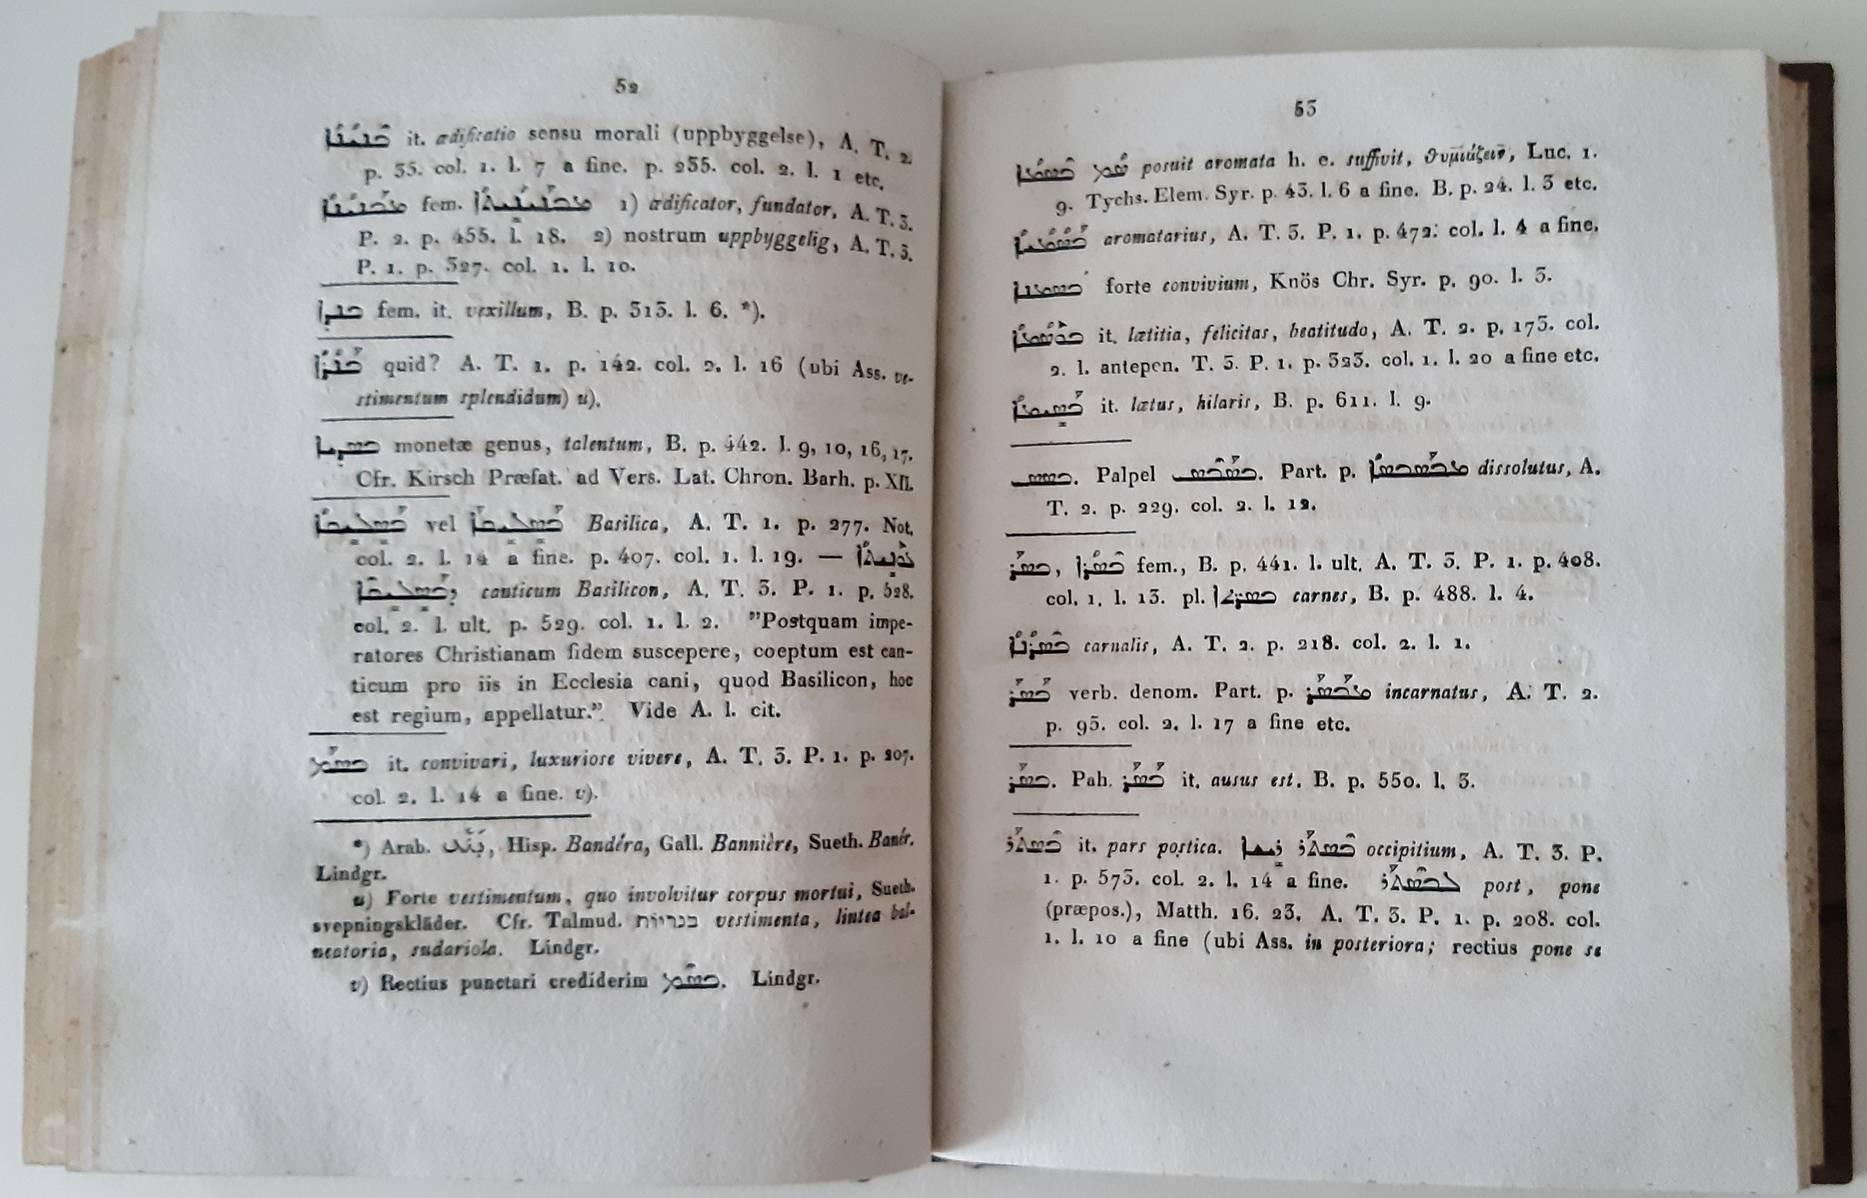 52
ܒܢܝܢܐ it. ædificatio sensu morali (uppbyggelse), A. T. 2.
p. 35. col. 1. l. 7 a fine. p. 235. col. 2. l. 1 etc.
ܡܒܢܝܢܐ fem. ܡܒܢܝܢܝܬܐ 1) ædificator, fundator, A. T. 3.
P. 2. p. 455. l. 18. 2) nostrum uppbyggelig, A. T. 3.
P. 1. p. 327. col. 1. l. 10.
ܒܢܕܐ fem. it. vexillum, B. p. 313. l. 6. *).
ܒܢܪܐ quid? A. T. 1. p. 142. col. 2. l. 16 (ubi Ass. ve-
stimentum splendidum) u).
monetæ genus, talentum, B. p. 442. l. 9, 10, 16, 17.
Cfr. Kirsch Præfat. ad Vers. Lat. Chron. Barh. p. XII.
ܒܣܝܠܝܩܐ vel ܒܣܠܝܩܐ Basilica, A. T. 1. p. 277. Not.
col. 2. l. 14 a fine. p. 407. col. 1. l. 19. —
canticum Basilicon, A. T. 3. P. 1. p. 528.
col. 2. l. ult. p. 529. col. 1. l. 2. ”Postquam impe-
ratores Christianam fidem suscepere, coeptum est can-
ticum pro iis in Ecclesia cani, quod Basilicon, hoc
est regium, appellatur.” Vide A. l. cit.
ܒܣܡ it. convivari, luxuriose vivere, A. T. 3. P. 1. p. 207.
col. 2. l. 14 a fine. v).
*) Arab. بَنْد, Hisp. Bandéra, Gall. Bannière, Sueth. Banér.
Lindgr.
u) Forte vestimentum, quo involvitur corpus mortui, Sueth.
svepningskläder. Cfr. Talmud. בנריות vestimenta, lintea bal-
neatoria, sudariola. Lindgr.
v) Rectius punctari crediderim ܒܣܡ. Lindgr.
53
ܒܣܡܐ ܣܡ posuit aromata h. e. suffivit, θυμιάζειν, Luc. 1.
9. Tychs. Elem. Syr. p. 43. l. 6 a fine. B. p. 24. l. 3 etc.
aromatarius, A. T. 3. P. 1. p. 472. col. l. 4 a fine.
forte convivium, Knös Chr. Syr. p. 90. l. 3.
ܒܘܣܡܐ it. lætitia, felicitas, beatitudo, A. T. 2. p. 173. col.
2. l. antepen. T. 3. P. 1. p. 323. col. 1. l. 20 a fine etc.
ܒܣܝܡܐ it. lætus, hilaris, B. p. 611. l. 9.
ܒܣ. Palpel ܒܣܒܣ. Part. p. ܡܒܣܒܣܐ dissolutus, A.
T. 2. p. 229. col. 2. l. 12.
ܒܣܪ, ܒܣܪܐ fem., B. p. 441. l. ult. A. T. 3. P. 1. p. 408.
col. 1. l. 13. pl. carnes, B. p. 488. l. 4.
ܒܣܪܢܐ carnalis, A. T. 2. p. 218. col. 2. l. 1.
ܒܣܪ verb. denom. Part. p. ܡܒܣܪ incarnatus, A. T. 2.
p. 95. col. 2. l. 17 a fine etc.
ܒܣܪ. Pah. ܒܣܪ it. ausus est. B. p. 550. l. 3.
ܒܣܬܪ it. pars postica. ܒܣܬܪ ܪܝܫܐ occipitium, A. T. 3. P.
1. p. 573. col. 2. l. 14 a fine. ܠܒܣܬܪ post, pone
(præpos.), Matth. 16. 23. A. T. 3. P. 1. p. 208. col.
1. l. 10 a fine (ubi Ass. in posteriora; rectius pone se